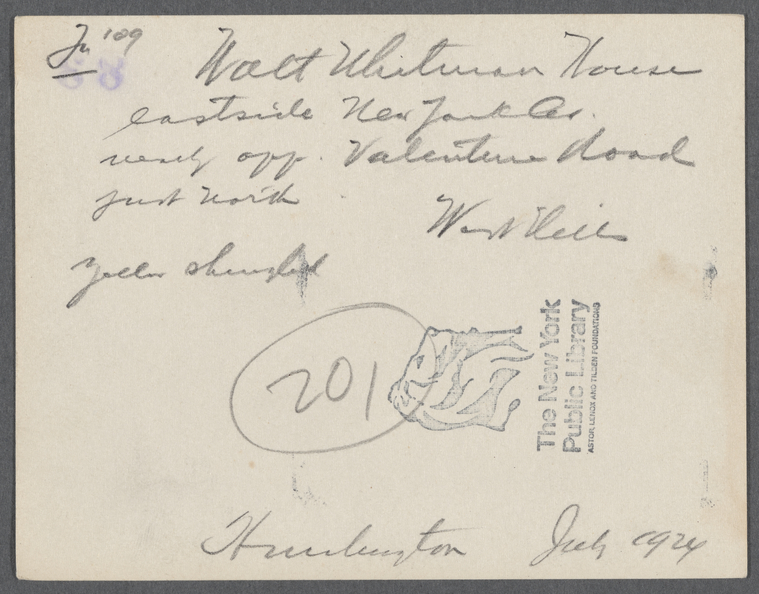 Walt Whitman House
eastside New York Av.
nearly opp. Valentine Road
just North
West Hills
yellow shingled
201
The New York
Public Library
ASTOR, LENOX AND TILDEN FOUNDATIONS
Huntington July 1924